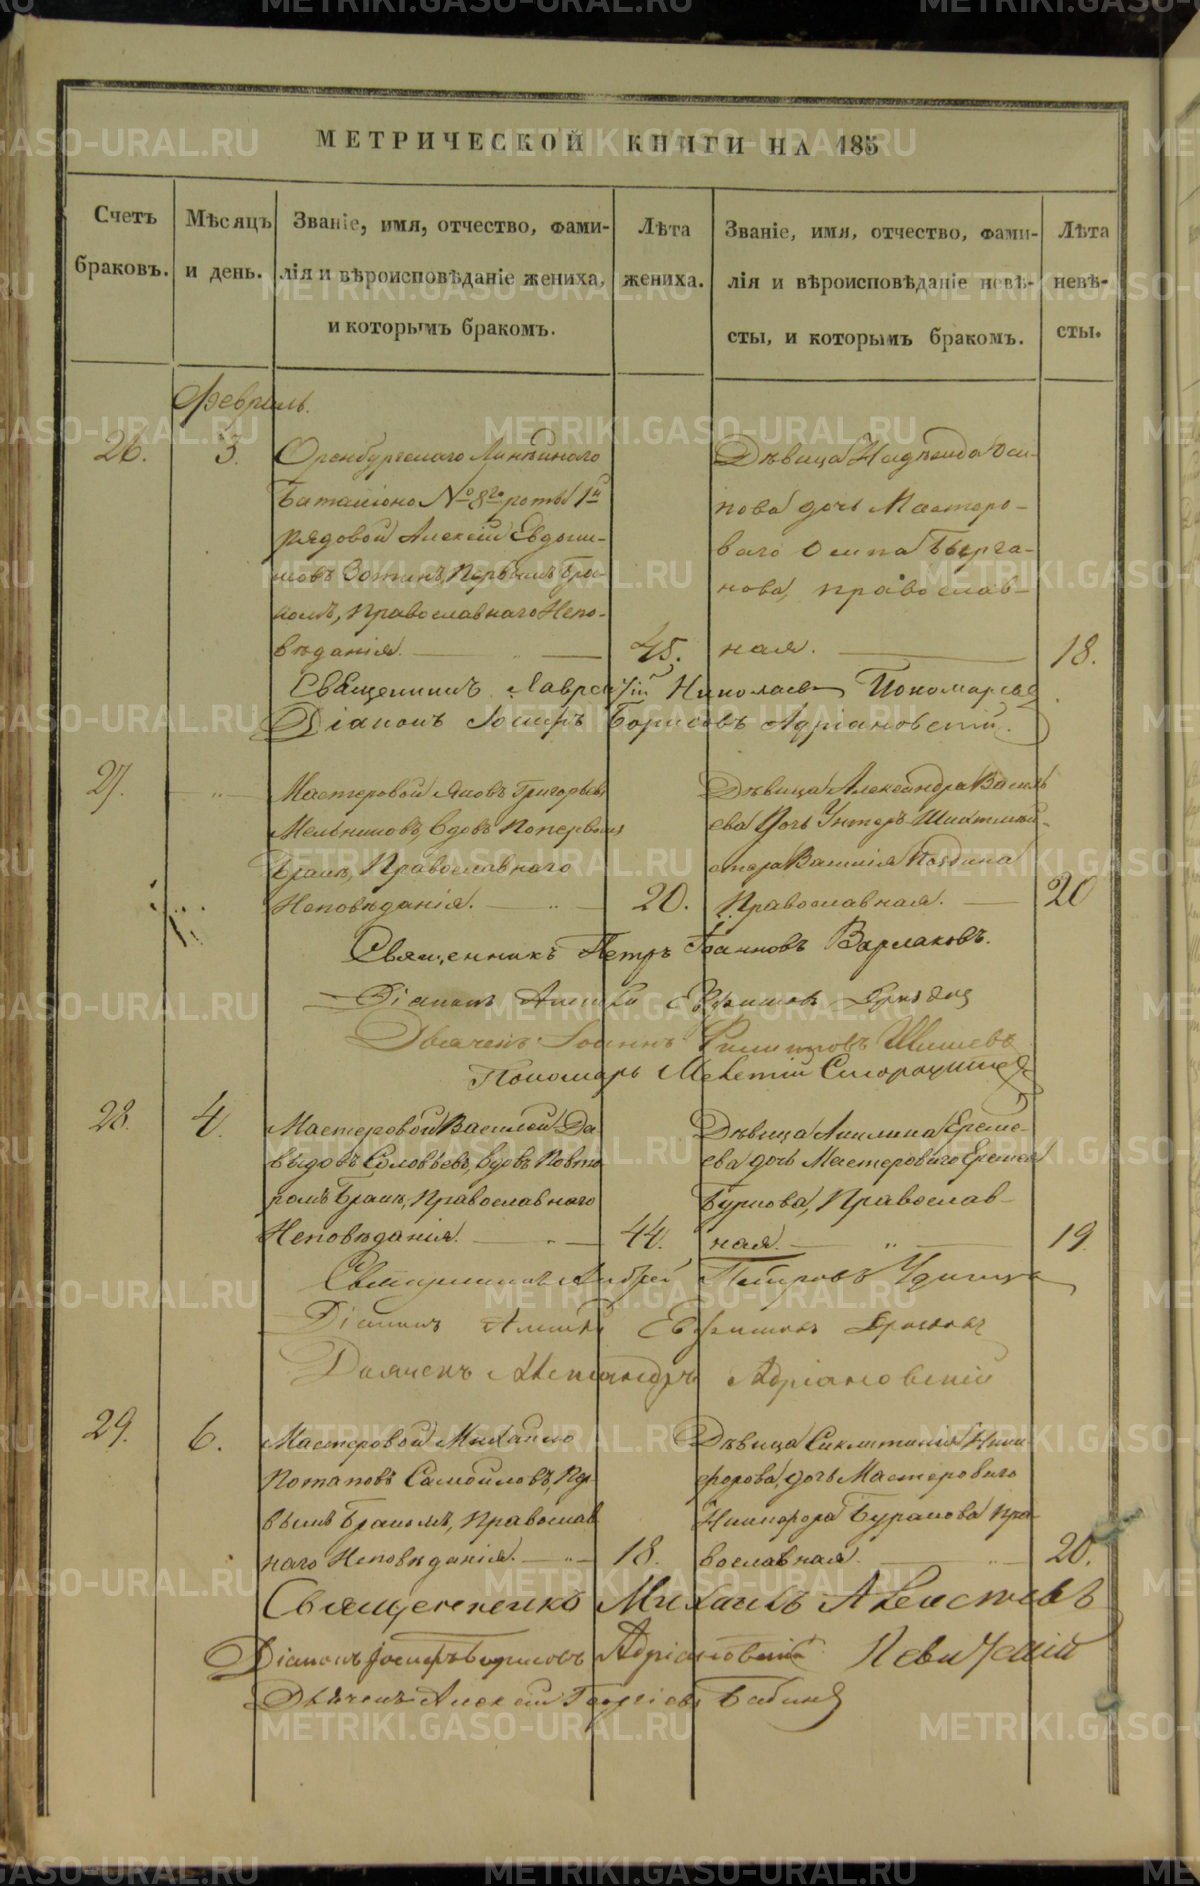 МЕТРИЧЕСКОЙ КНИГИ НА 185
Счетъ браковъ.
Мѣсяцъ и день.
Званіе, имя, отчество, фами-
лія и вѣроисповѣданіе жениха,
и которымъ бракомъ.
Лѣта
жениха.
Званіе, имя, отчество, фами-
лія и вѣроисповѣданіе невѣ-
сты, и которымъ бракомъ.
Лѣта
невѣ-
сты.
Февраль.
26.
3.
Оренбургскаго Линѣйнаго
Баталіона № 8го роты 1й
рядовой Алексѣй Евдоки-
мовъ Зотинъ, Первымъ Бра-
комъ, Православнаго Испо-
вѣданія.
45.
Дѣвица Надѣжда Оси-
пова дочь Мастеро-
ваго Осипа
православ-
ная.
18.
Священникъ Лаврентій Николаевъ Пономаревъ
Діаконъ Іосифъ Борисовъ Адріановскій.
27.
Мастеровой Яковъ Григорьевъ
Мельниковъ, вдовъ по первомъ
Бракѣ, Православнаго
Исповѣданія.
20.
Дѣвица Александра Василь
ева дочь Унтеръ Шихтмей-
стера Василія
Православная.
20
Священникъ Петръ Іоанновъ Варлаковъ.
Діаконъ
Дьячекъ Іоаннъ Филиповъ Шишевъ
Пономарь Мелетій
28.
4.
Мастеровой Василей Да-
выдовъ Соловьевъ, вдовъ по вто
ромъ Бракѣ, Православнаго
Исповѣданія.
44.
Дѣвица Акилина Ереме-
ева дочь Мастероваго Еремея
Буркова, Православ-
ная.
19.
Священникъ Андрей Петровъ Удинцевъ
Діаконъ
Дьячекъ Александръ Адріановскій
29.
6.
Мастеровой Михайло
Потаповъ Самойловъ, Пер-
вымъ Бракомъ, Православ
наго Исповѣданія.
18.
Дѣвица Сиклитикія Ники
форова, дочь Мастероваго
Никифора Буракова Пра-
вославная.
20.
Священникъ Михаилъ
Діаконъ Іосифъ Борисовъ Адріановскій
Дьячекъ Алексѣй Георгіевъ Бабинъ
METRIKI.GASO-URAL.RU